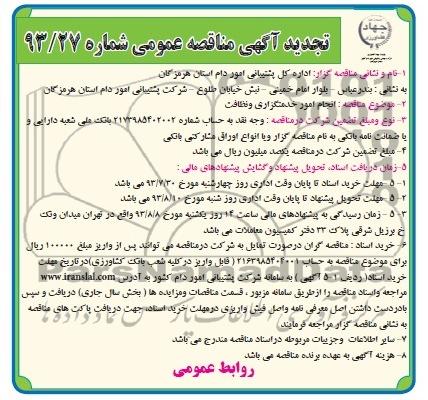 جهاد
تجدید آگهی مناقصه عمومی شماره ۹۳/۲۷
۱-نام و نشانی مناقصه گزار: اداره کل پشتیبانی امور دام استان هرمزگان
به نشانی : بندرعباس - بلوار امام خمینی - نبش خیابان طلوع - شرکت پشتیبانی امور دام استان هرمزگان
۲-موضوع مناقصه : انجام امور خدمتگزاری ونظافت
۳- نوع ومبلغ تضمین شرکت درمناقصه : وجه نقد به حساب شماره ۲۱۷۳۹۸۵۴۰۲۰۰۲ بانک ملی شعبه دارایی و
یا ضمانت نامه بانکی به نام مناقصه گزار ویا انواع اوراق مشارکتی بانکی
۴- مبلغ تضمین شرکت درمناقصه یکصد میلیون ریال می باشد
۵-زمان دریافت اسناد، تحویل پیشنهاد وگشایش پیشنهادهای مالی :
۱-۵- مهلت خرید اسناد تا پایان وقت اداری روز چهارشنبه مورخ ۹۳/۷/۳۰ می باشد
۲-۵- مهلت تحویل پیشنهاد تا پایان وقت اداری روز شنبه مورخ ۹۳/۸/۱۰ می باشد
۳-۵- زمان رسیدگی به پیشنهادهای مالی ساعت ۱۴ روز یکشنبه مورخ ۹۳/۸/۸ واقع در تهران میدان ونک
خ برزیل شرقی پلاک ۲۳ دفتر کمیسیون معاملات می باشد
۶- خرید اسناد : مناقصه گران درصورت تمایل به شرکت درمناقصه می توانند پس از واریز مبلغ ۱۰۰۰۰۰۰ ریال
برای موضوع مناقصه به حساب ۲۱۶۳۹۸۵۴۰۴۰۰۱ ( قابل واریز در کلیه شعب بانک کشاورزی)در تاریخ مهلت
خرید اسناد (ردیف ۱-۵ آگهی ) به سامانه شرکت پشتیبانی امور دام کشور به آدرس www.iranslal.com
مراجعه واسناد مناقصه را ازطریق سامانه مزبور ، قسمت مناقصات ومزایده ها ( بخش سال جاری) دریافت و سپس
بادردست داشتن اصل معرفی نامه واصل فیش واریزی درمهلت خرید اسناد، جهت دریافت پاکت های مناقصه
به نشانی مناقصه گزار مراجعه فرمایند
۷- سایر اطلاعات وجزییات مربوطه دراسناد مناقصه مندرج می باشد
۸- هزینه آگهی به عهده برنده مناقصه می باشد
روابط عمومی